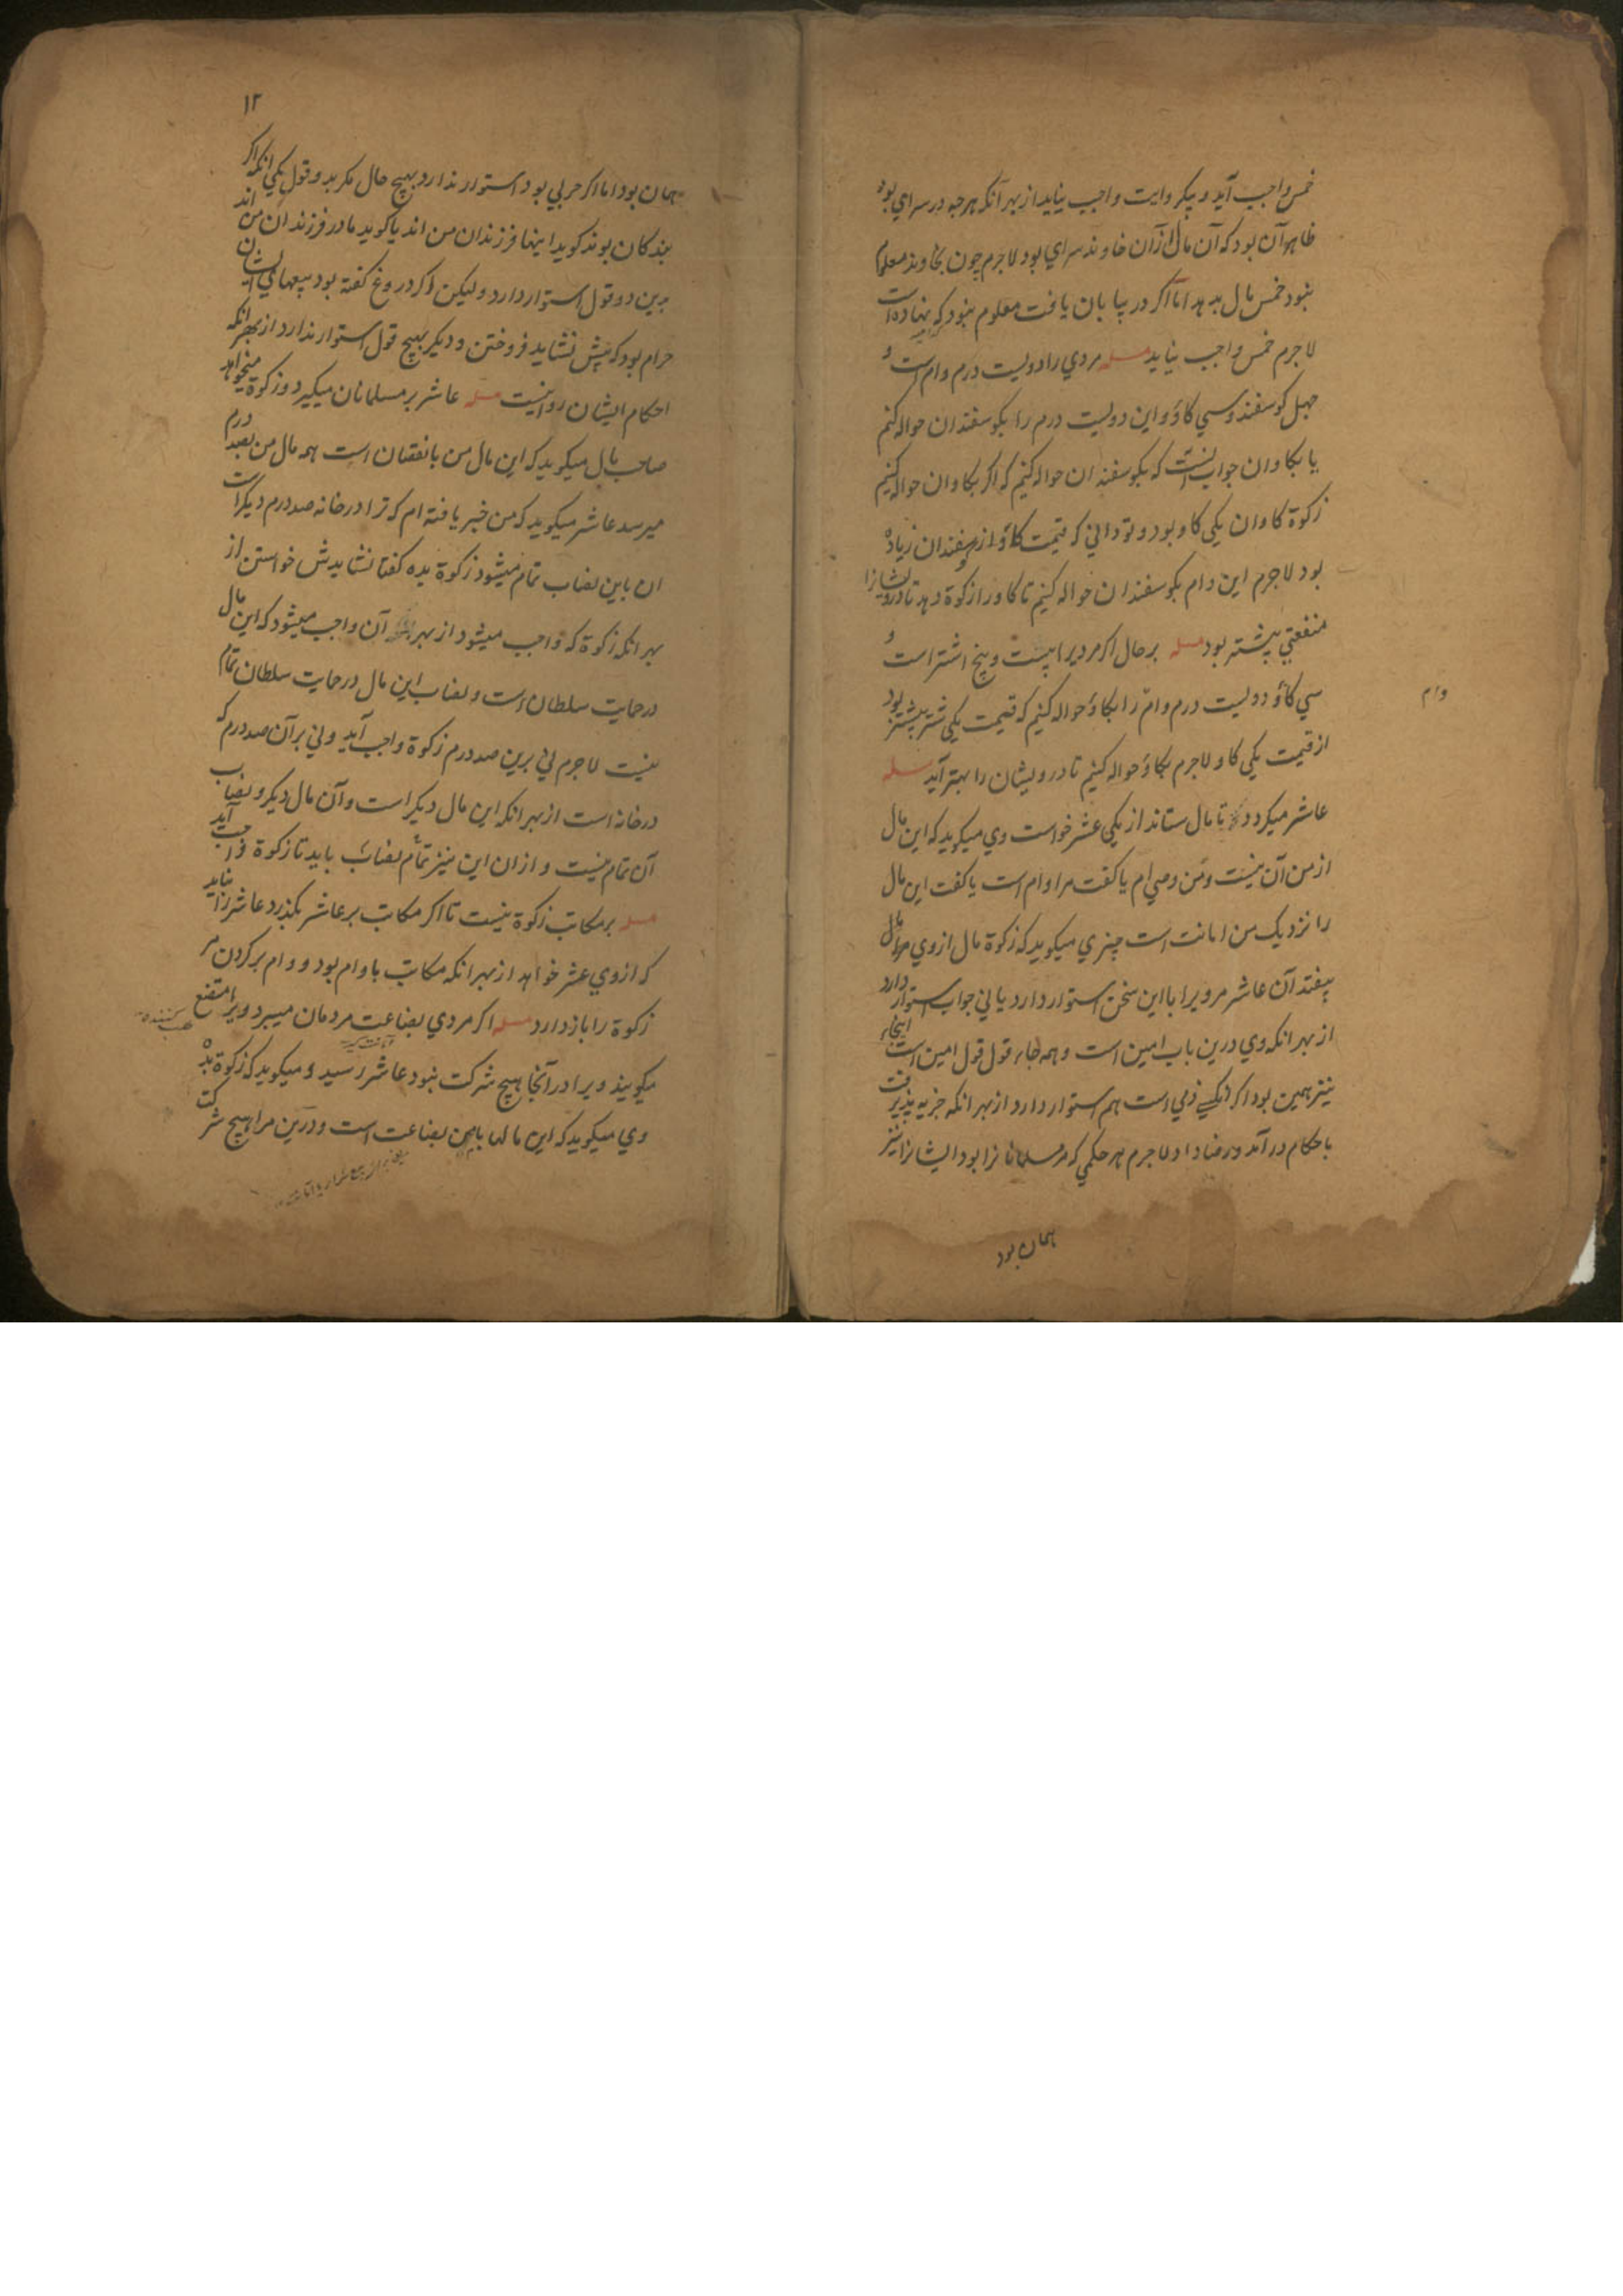 خمس واجب آید و بیکروایت واجب نیاید از بهر آنکه هرچه در سرای بود
ظاهر آن بود که آن مال ازان خاوند سرای بود لاجرم چون خاوند معلوم
نبود خمس مال بدهد اما اگر در بیابان یافت معلوم نبود که نهاده است
لاجرم خمس واجب نیاید مسله مردی را دویست درم وام است و
چهل کوسفند و سی کاؤ و این دویست درم را بکوسفندان حواله کنیم
یا بکاوان جواب آنست که بکوسفندان حواله کنیم که اگر بکاوان حواله کنیم
زکوة کاوان یکی کاو بود و تو دانی که قیمت کاؤ از کوسفندان زیاده
بود لاجرم این وام بکوسفندان حواله کنیم تا کاو را زکوة دهد تا درویشانرا
منفعتی بیشتر بود مسله برحال اکر مردیرا بیست و پنج اشتر است و
سی کاؤ و دویست درم وام را بکاؤ حواله کنیم که قیمت یکی شتر بیشتر بود
وام
از قیمت یکی کاو لاجرم بکاؤ حواله کنیم تا درویشان را بهتر آید مسله
عاشر میکردد تا مال ستاند از یکی عشر خواست وی میکوید که این مال
از من آن نیست و من وصی ام یا کفت مرا وام است یا کفت این مال
را نزدیک من امانت است چیزی میکوید که زکوة مال از وی
بیفتد آن عاشر مرویرا با این سخن استوار دارد یا نی جواب استوار دارد
از بهر انکه وی درین باب امین است و همه جاء قول قول امین است اینجا
نیز همین بود اکر ذمی است هم استوار دارد از بهر انکه جزیه پذیرفت
باحکام در آمد و رضا داد لاجرم هر حکمی که مر مسلمانانرا بود ایشانرا نیز
همان بود
۱۲
همان بود اما اکر حربی بود استوار ندارد بهیچ حال مکر بدو قول یکی انکه اکر
بندکان بوند کوید اینها فرزندان من اند یا کوید مادر فرزندان من اند
برین دو قول استوار دارد ولیکن اکر دروغ کفته بود بیعهای ایشان
حرام بود که پیش نشاید فروختن و دیکر بهیچ قول استوار ندارد از بهر انکه
احکام ایشان روا نیست مسله عاشر بر مسلمانان میکیرد و زکوة میخواهد
صاحب مال میکوید که این مال من با نقصان است همه مال من بصد درم
میرسد عاشر میکوید که من خبر یافته ام که ترا در خانه صد درم دیکر است
ان باین نصاب تمام میشود زکوة بده کفتا نشایدش خواستن از
بهر انکه زکوة که واجب میشود از بهر آن واجب میشود که این مال
در حمایت سلطان است و نصاب این مال در حمایت سلطان تمام
نیست لاجرم نی برین صد درم زکوة واجب آید و نی بر آن صد درم که
در خانه است از بهر انکه این مال دیکر است و آن مال دیکر و نصاب
آن تمام نیست و ازان این نیز تمام نصاب باید تا زکوة واجب آید
مسله بر مکاتب زکوة نیست تا اکر مکاتب بر عاشر بکذرد عاشر را نیاید
که از وی عشر خواهد از بهر انکه مکاتب باوام بود و وام بر کردن مر
زکوة را باز دارد مسله اکر مردی بضاعت مردمان میبرد و ویرا متضع
میکویند ویرا در آنجا هیچ شرکت نبود عاشر رسید و میکوید که زکوة بده
وی میکوید که این مالها باین بضاعت است و درین مرا هیچ شرکت